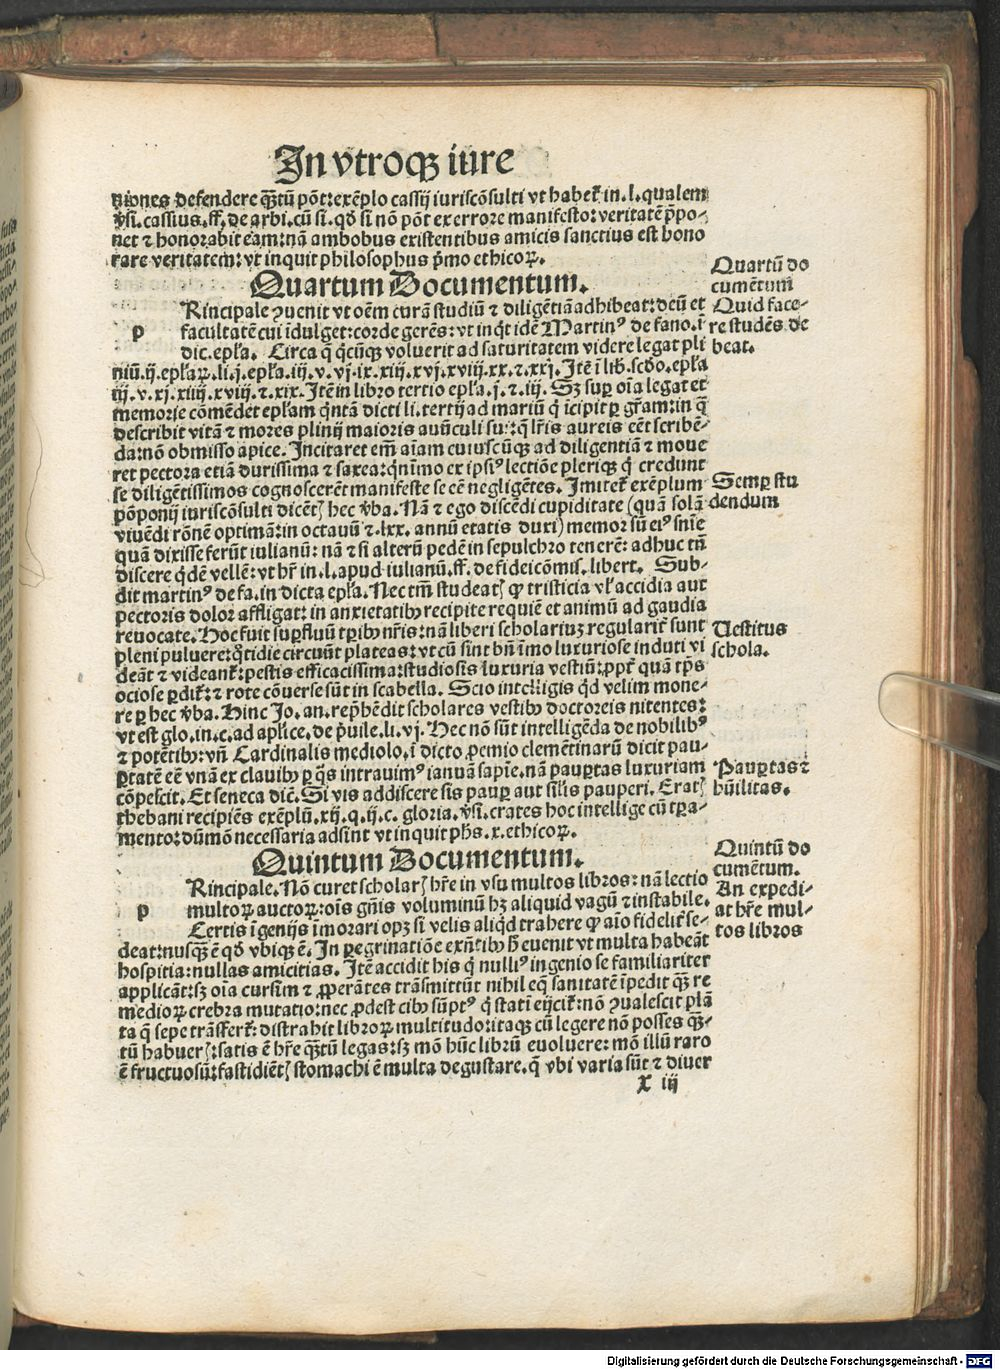 In vtroqꝫ iure
niones defendere qȝtū pōt: exēplo cassij iuriscōsulti vt habet̄ in. l. qualem
vsi. cassius. ff. de arbi. cū si. qd̄ si nō pōt ex errore manifesto: veritatē p̄po-
net ⁊ honorabit eam: nā ambobus existentibus amicis sanctius est hono
rare veritatem: vt inquit philosophus p̄mo ethicoꝝ.
Quartum Documentum.
Quartū do
cumētum
Quid face-
re studēs de
beat.
p
Rincipale ꝯuenit vt oēm curā studiū ⁊ diligētiā adhibeat: decū et
facultatē cui īdulget: corde gerēs: vt inq̇t idē Martinꝰ de fano. ī
dic. epl̄a. Circa q̄ q̇cūqꝫ voluerit ad saturitatem videre legat pli
niū. ij. epl̄aꝝ. li. j. epl̄a. iij. v. vj. ix. xiij. xvj. xviij. xx. ⁊. xxj. Itē ī lib̄. scd̄o. epl̄a
iij. v. xj. xiiij. xviij. ⁊. xix. Itē in libro tertio epl̄a. j. ⁊. iij. Sꝫ suꝑ oīa legat et
memorie cōmēdet epl̄am q̇ntā dicti li. tertij ad mariū q̄ icipit ꝑ gr̄am: in q̄
describit vitā ⁊ mores plinij maioris auūculi sui: q̇ lr̄is aureis eēt scribē-
da: nō obmisso apice. Incitaret em̄ aīam cuiuscūqꝫ ad diligentiā ⁊ moue
ret pectora etiā durissima ⁊ saxea: q̇nīmo ex ipsiꝰ lectiōe pleriqꝫ q̇ credunt
se diligētissimos cognoscerēt manifeste se eē negligētes. Imitet̄ exēplum
Semꝑ stu
dendum
pōponij iuriscōsulti dicētꝭ hec v̄ba. Nā ⁊ ego discēdi cupiditate (quā solā
viuēdi rōnē optimā: in octauū ⁊. lxx. annū etatis duxi) memor sū eiꝰ snīe
quā dixisse ferūt iulianū: nā ⁊ si alterū pedē in sepulchro tenerē: adhuc tn̄
discere q̇dē vellē: vt hr̄ in. l. apud iulianū. ff. de fideicōmis. libert. Sub-
dit martinꝰ de fa. in dicta epl̄a. Nec tm̄ studeatꝭ ꝙ tristicia vl̓ accidia aut
pectoris dolor affligat: in anxietatibꝫ recipite requiē et animū ad gaudia
reuocate. Hoc fuit suꝑfluū tꝑibꝫ nr̄is: nā liberi scholariuꝫ regularit̓ sunt
Uestitus
schola.
pleni puluere: q̇tidie circuūt plateas: vt cū sint bn̄ īmo luxuriose induti vi
deāt ⁊ videant̄: pestis efficacissima: studiosis luxuria vestiū: ꝓpt̓ quā tp̄s
ociose ꝑdit̄: ⁊ rote cōuerse sūt in scabella. Scio intelligis qd̓ velim mone-
re ꝑ hec v̄ba. Hinc Jo. an. rep̄hēdit scholares vestibꝫ doctoreis nitentes:
vt est glo. in. c. ad apl̓ice. de p̄uile. li. vj. Hec nō sūt intelligēda de nobilibꝰ
⁊ potētibꝫ: vn̄ Cardinalis mediolo. ī dicto ꝓemio clemētinarū dicit pau-
ꝑtatē eē vnā ex clauibꝫ ꝑ q̄s intrauimꝰ ianuā sapīe. nā pauꝑtas luxuriam
Pauꝑtas ⁊
hūilitas.
cōpescit. Et seneca dic̄. Si vis addiscere sis pauꝑ aut silis pauperi. Eratꝭ
thebani recipiēs exēplū. xij. q. ij. c. gloria. vsi. crates hoc intellige cū tꝑa-
mento: dūmō necessaria adsint vt inquit ph̄s. x. ethicoꝝ.
Quintum Documentum.
Quintū do
cumētum.
An expedi-
at hr̄e mul-
tos libros
p
Rincipale. Nō curet scholarꝭ hr̄e in vsu multos libros: nā lectio
multoꝝ auctoꝝ: oīs gn̄is voluminū hꝫ aliquid vagū ⁊ instabile.
Certis īgenijs īmorari opꝫ si velis aliq̇d trahere ꝙ aīo fidelit̓ se-
deat: nusqȝ ē qd̓ vbiqꝫ ē. In ꝑegrinatiōe exn̄tibꝫ h̄ euenit vt multa habeāt
hospitia: nullas amicitias. Itē accidit his q̇ nulliꝰ ingenio se familiariter
applicāt: sꝫ oīa cursim ⁊ ꝓꝑantes trāsmittūt nihil eq̄ sanitatē īpedit qȝ re
medioꝝ crebra mutatio: nec ꝓdest cibꝫ sūptꝰ q̇ statī eijcit̄: nō ꝯualescit plā
ta q̄ sepe trāsfert̄: distrahit libroꝝ multitudo: itaqꝫ cū legere nō posses qȝ-
tū habuerꝭ: satis ē hr̄e qȝtū legas: sꝫ mō hūc librū euoluere: mō illū raro
ē fructuosū: fastidiētꝭ stomachi ē multa degustare. q̄ vbi varia sūt ⁊ diuer
x iij
Digitalisierung gefördert durch die Deutsche Forschungsgemeinschaft - DFG